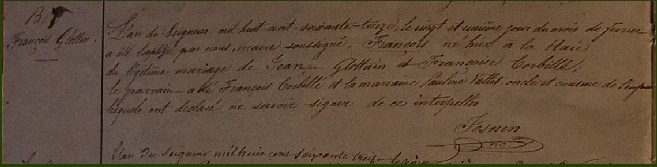 B.
François Glottin
L'an du Seigneur mil huit cent soixante-treize, le vingt et unième jour du mois de février
a été baptisé par nous, vicaire soussigné, François né hier à la Haie
du légitime mariage de Jean Glottain et Françoise Corbelle.
le parrain a été François Corbelle et la marraine Pauline Vallet oncle et cousine de l'enfant
lesquels ont déclaré ne savoir signer de ces interpellés
L'an du Seigneur mil huit cent soixante treize